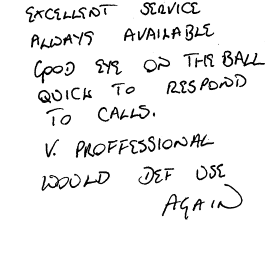 EXCELLENT SERVICE
ALWAYS AVAILABLE
GOOD EYE ON THE BALL
QUICK TO RESPOND
TO CALLS.
V. PROFFESSIONAL
WOULD DEF USE
AGAIN